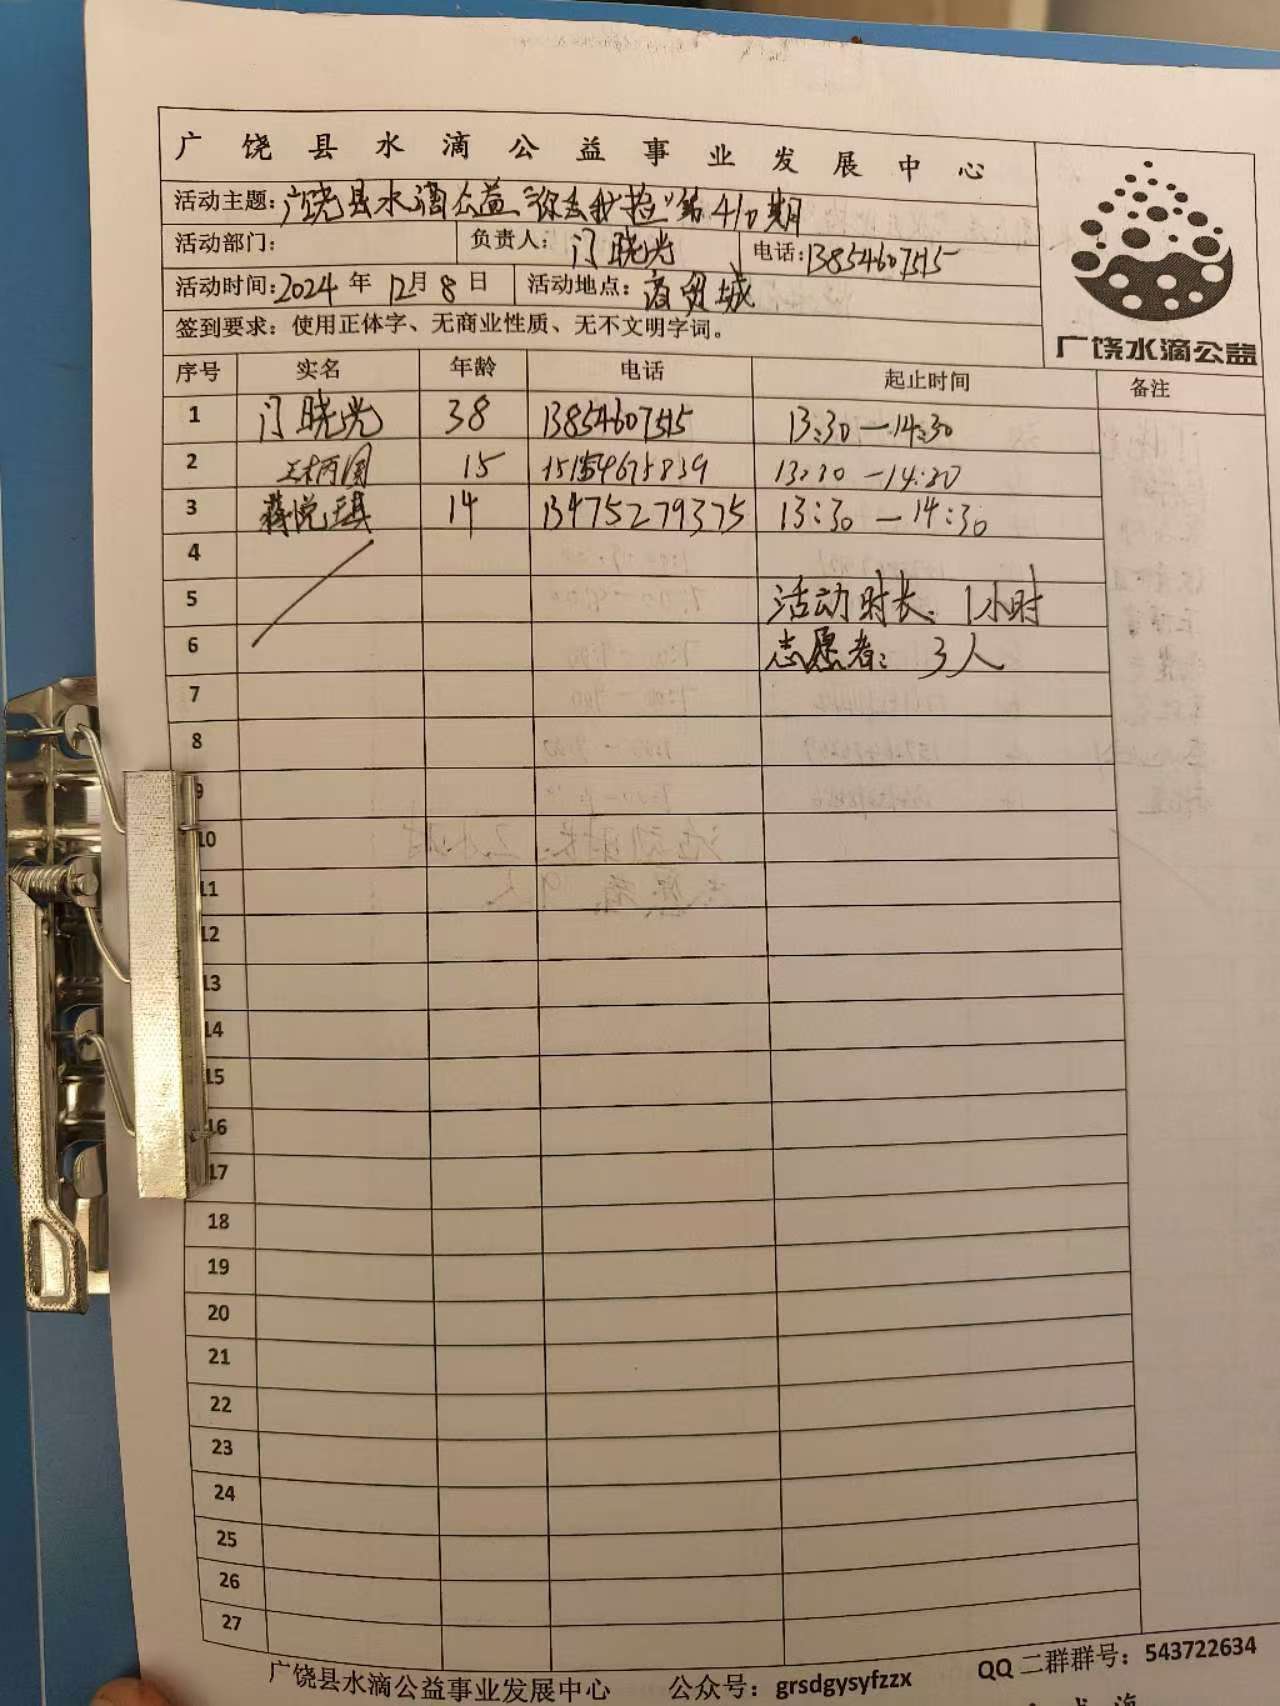 广饶县水滴公益事业发展中心
活动主题：广饶县水滴公益"你丢我捡"第410期
活动部门： 负责人：门晓光 电话：13854607515
活动时间：2024年12月8日 活动地点：商贸城
签到要求：使用正体字、无商业性质、无不文明字词。
广饶水滴公益
序号 实名 年龄 电话 起止时间 备注
1 门晓光 38 13854607515 13:30—14:30
2 15 13:30—14:30
3 蒋悦琪 14 13475279375 13:30—14:30
4
5 活动时长：1小时
6 志愿者：3人
7
8
9
10
11
12
13
14
15
16
17
18
19
20
21
22
23
24
25
26
27
广饶县水滴公益事业发展中心 公众号：grsdgysyfzzx QQ二群群号：543722634